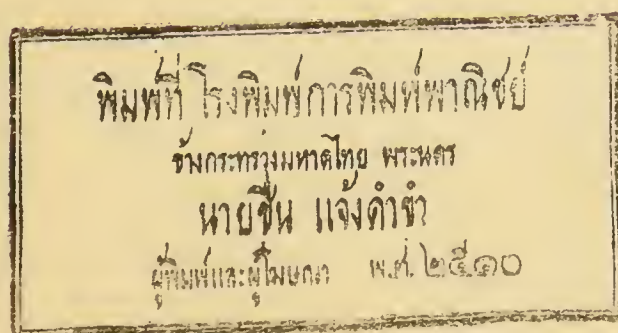 พิมพ์ที่ โรงพิมพ์การพิมพ์พาณิชย์
ข้างกระทรวงมหาดไทย พระนคร
นายชื่น แจ้งคำขำ
ผู้พิมพ์และผู้โฆษณา พ.ศ. ๒๕๑๐